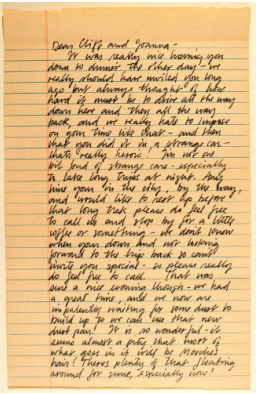 Dear Cliff and Joanna -
It was really nice having you
down to dinner the other day - we
really should have invited you long
ago but always thought of how
hard it must be to drive all the way
down here and then all the way
back, and we really hate to impose
on your time like that - and then
that you did it in a strange car -
thats really heroic. Im not one
bit fond of strange cars - especially
to take long trips at night. Any
time your in the city, by the way,
and would like to rest up before
that long trek please do feel free
to call us and stop by for a little
coffee or something - we don't know
when your down and not looking
forward to the trip back so cant
invite you special - so please really
do feel free to call. That was
sure a nice evening though - we had
a great time, and we now are
impatiently waiting for some dust to
build up so we can use that new
dust pan! It is so wonderful - it
seems almost a pity that most of
what goes in it will be
hair! Theres plenty of that floating
around for sure, especially now!